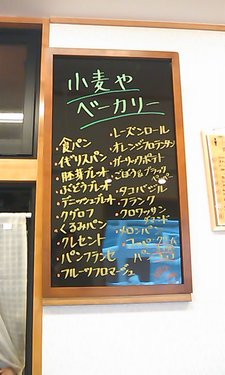 小麦や
ベーカリー
・食パン
・イギリスパン
・胚芽ブレット
・ぶどうブレット
・デニッシュブレット
・クグロフ
・くるみパン
・クレセント
・パンフランセ
・フルーツフロマージュ
・レーズンロール
・オレンジフロランタン
・ガーリックポテト
・ごぼう&ブラックペッパー
・タコバジル
・フランク
・クロワッサン
・メロンパン